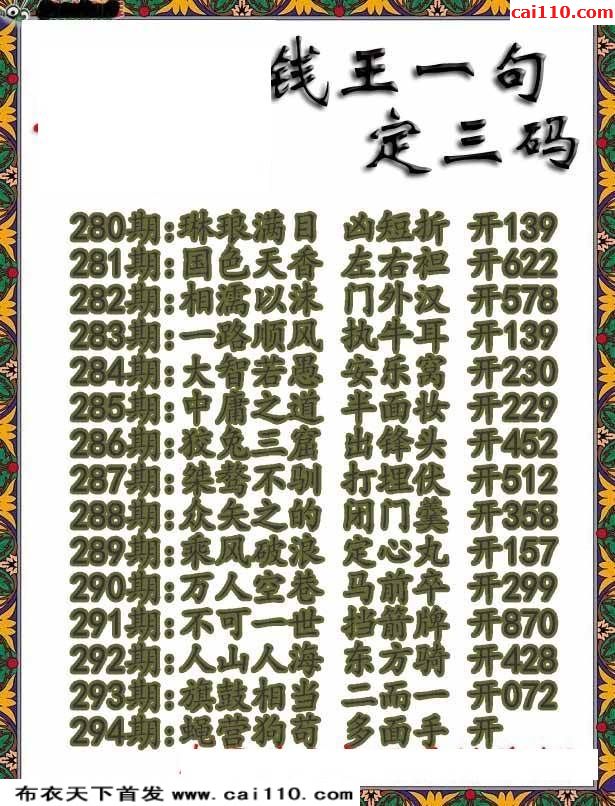 cai110.com
钱王一句
定三码
280期:琳琅满目 凶短折 开139
281期:国色天香 左右袒 开622
282期:相濡以沫 门外汉 开578
283期:一路顺风 执牛耳 开139
284期:大智若愚 安乐窝 开230
285期:中庸之道 半面妆 开229
286期:狡兔三窟 出锋头 开452
287期:桀骜不驯 打埋伏 开512
288期:众矢之的 闭门羹 开358
289期:乘风破浪 定心丸 开157
290期:万人空巷 马前卒 开299
291期:不可一世 挡箭牌 开870
292期:人山人海 东方骑 开428
293期:旗鼓相当 二而一 开072
294期:蝇营狗苟 多面手 开
布衣天下首发 www.cai110.com